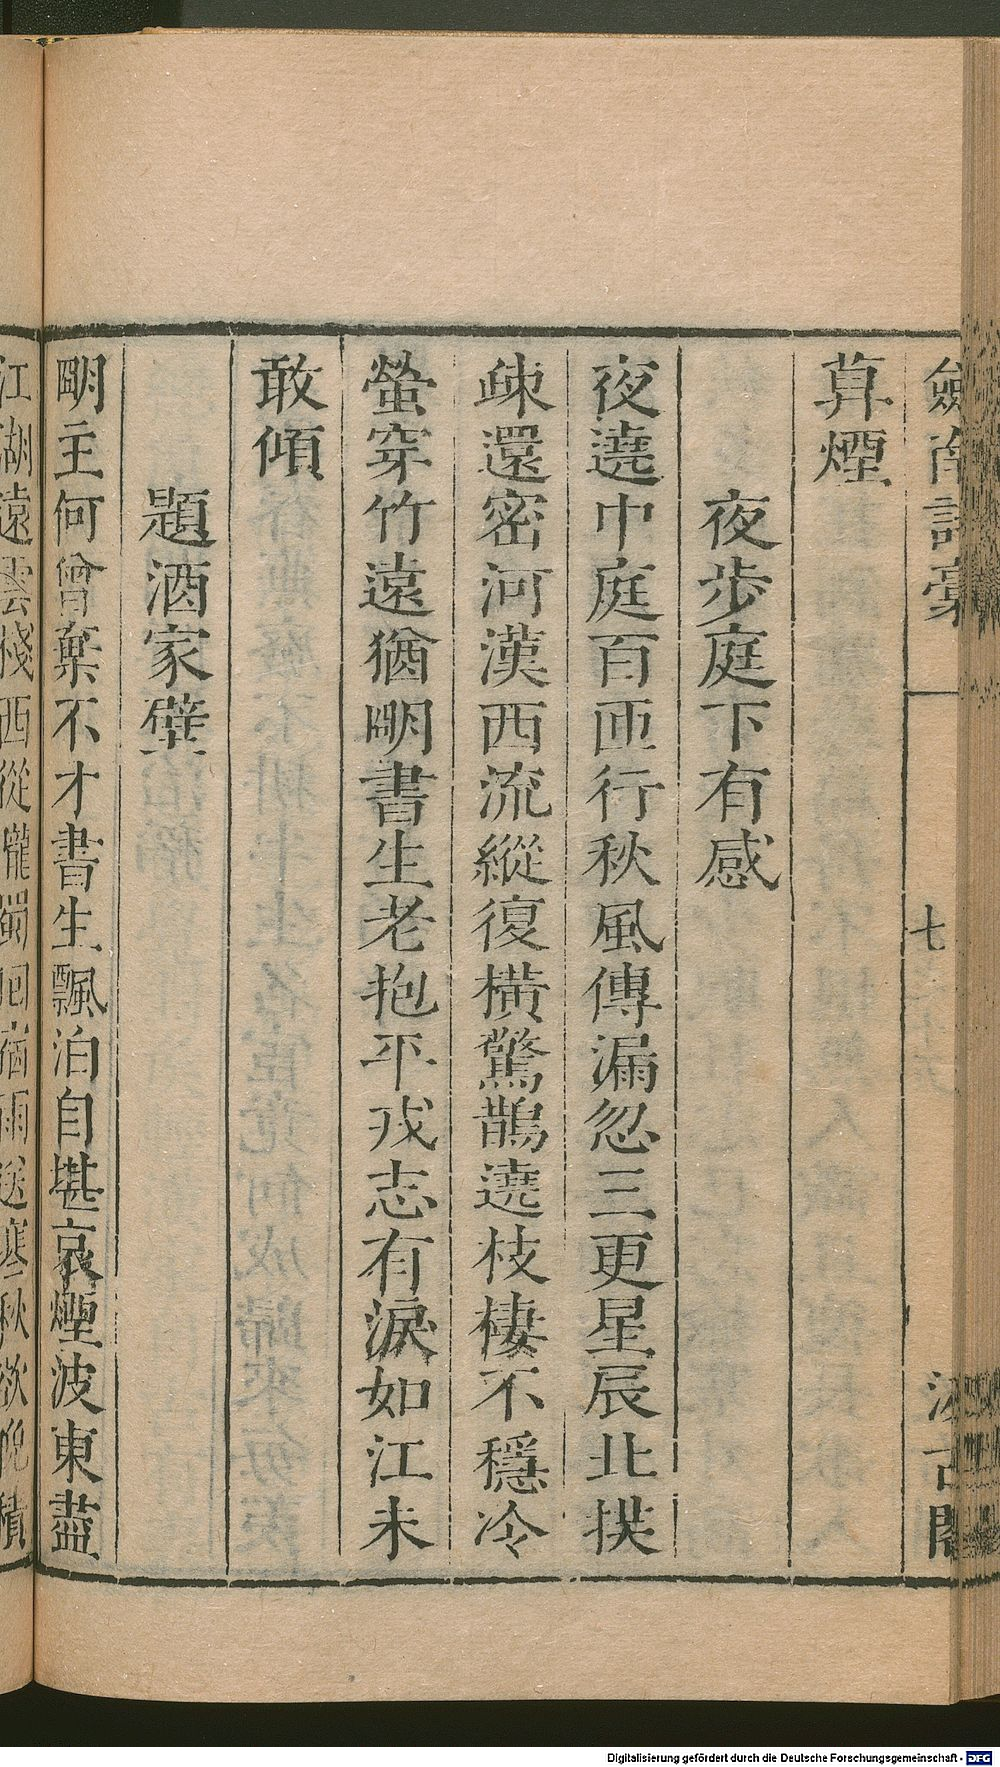 劒南詩稾
七
汲古閣
筭煙
夜步庭下有感
夜遶中庭百匝行秋風傳漏忽三更星辰北拱
疎還密河漢西流縱復橫驚鵲遶枝棲不穩冷
螢穿竹遠猶明書生老抱平戎志有淚如江未
敢傾
題酒家壁
明主何曾棄不才書生飄泊自堪哀煙波東盡
江湖遠雲棧西從隴蜀回宿雨送寒秋欲晚積
Digitalisierung gefördert durch die Deutsche Forschungsgemeinschaft - DFG